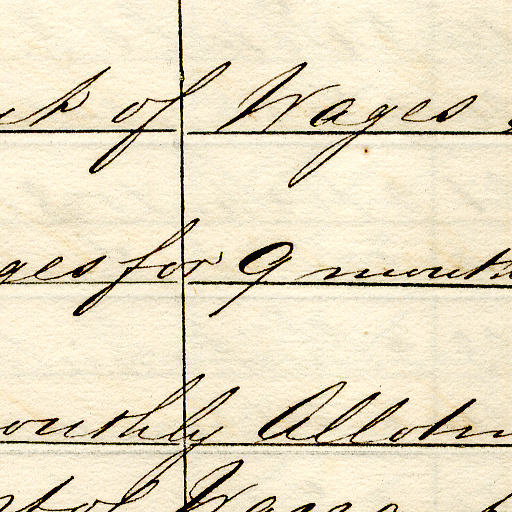 of Wages
ges for 9 month
onthly Allotm
Wages